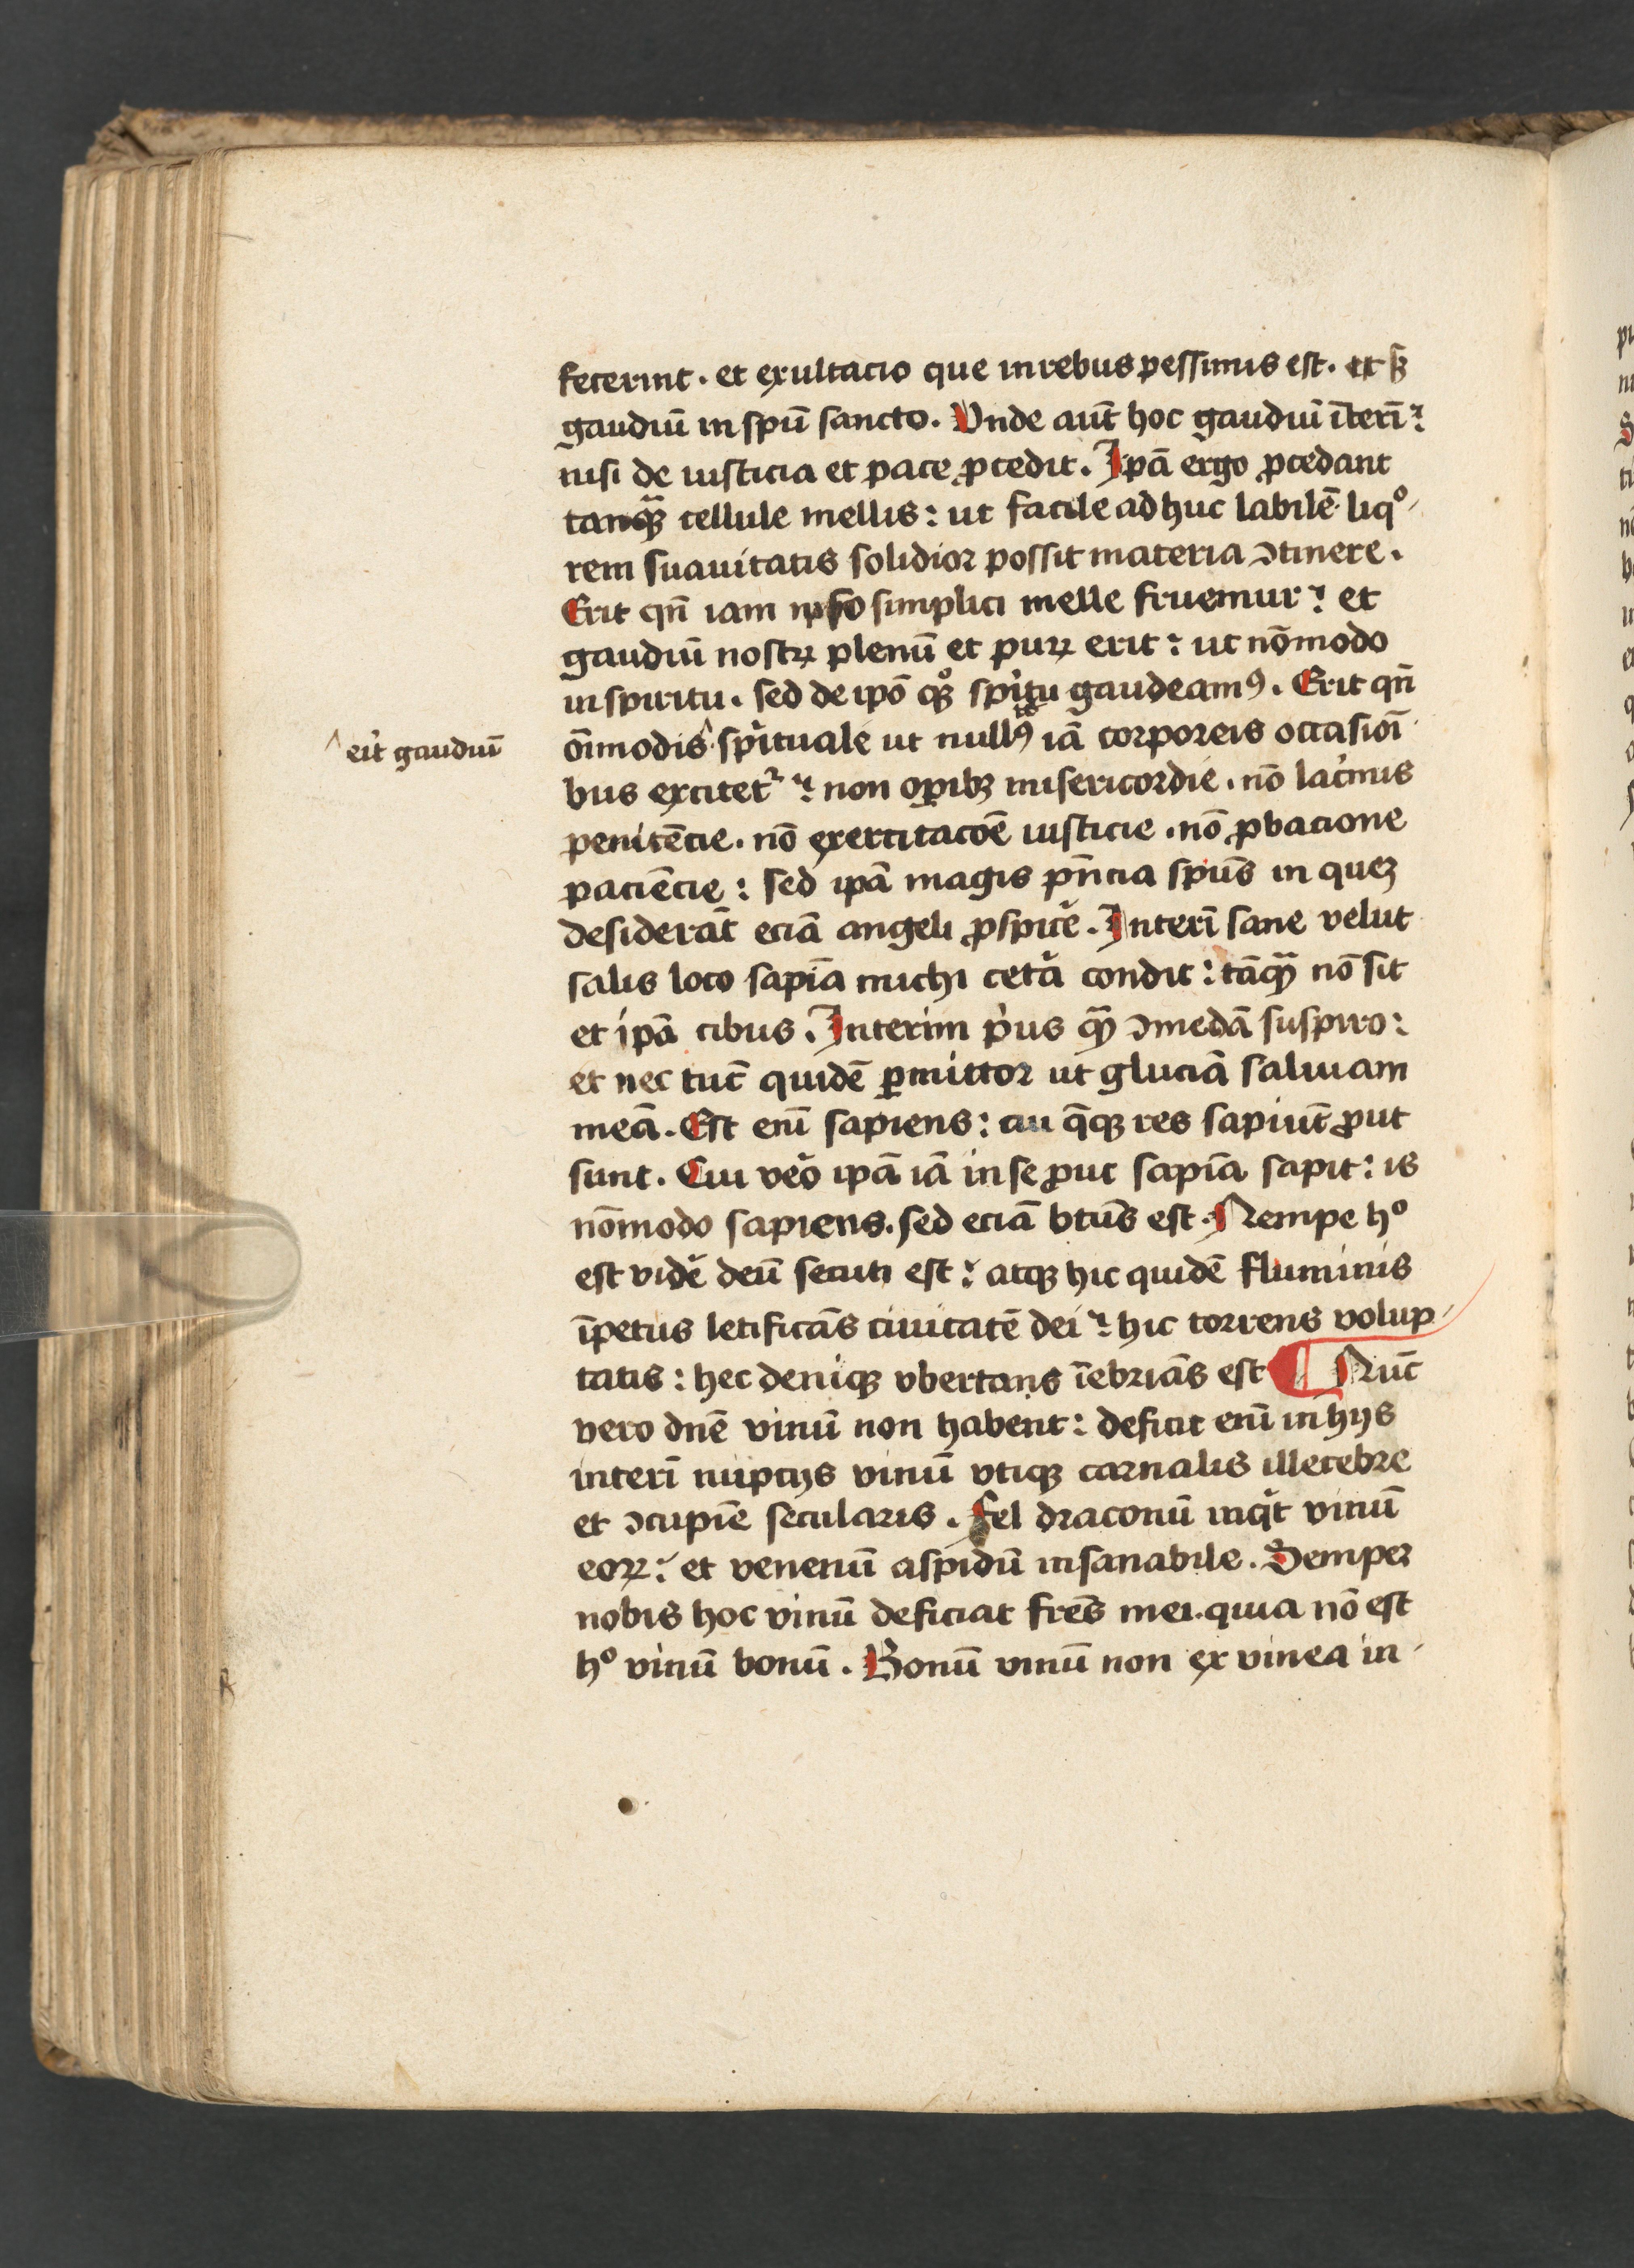 fecerint. et exultacio que in rebus pessimis est. et ꝫ
gaudiū in spū sancto. Vnde aūt hoc gaudiū īterī?
nisi de iusticia et pace ꝓcedit. Ipā ergo ꝓcedant
tanqꝫ cellule mellis: ut facile ad huc labilē liqͦ-
rem suauitatis solidior possit materia ꝯtinere.
Erit qn̄ iam ipso simplici melle fruemur? et
gaudiū nostꝝ plenū et puꝝ erit: ut nōmodo
in spiritu. sed de ipō qꝫͦ spitu gaudeamꝰ. Erit qn̄
^ erit gaudiū
oīmodis ^ spirituale ut nullꝰ iā corporeis occasioī-
bus excitet᷑? non oꝑibꝫ misericordie. nō lacimis
penitēcie. nō exercitacōe iusticie. nō ꝓbacione
paciēcie: sed ipā magis pn̄cia spūs in quez
desiderāt eciā angeli ꝓspicē. Interī sane velut
salis loco sapīa michi cetā condit: tāqꝫ nō sit
et ipā cibus. Interim pius qꝫ ꝯmedā suspiro:
et nec tūc quidē ꝑmittor ut gluciā saliuam
meā. Est enī sapiens: cui q̄qꝫ res sapiūt ꝓut
sunt. Cui veo ipā iā in se ꝓut sapīa sapit: is
nōmodo sapiens. sed eciā btūs est. Nempe hͦ
est vidē deū secuti est? atqꝫ hic quidē fluminis
īpetus letificās ciuitatē dei? hic torrens volup-
tatis: hec deniqꝫ vbertans īebriās est ¶ Nūc
vero dn̄e vinū non habent: deficit enī in hijs
interī nupcijs vinū vtiqꝫ carnalis illecebre
et ꝯcupīe secularis. Fel draconū inqit vinū
eoꝝ: et venenū aspidū insanabile. Semper
nobis hoc vinū deficiat frēs mei. quia nō est
hͦ vinū bonū. Bonū vinū non ex vinea in-